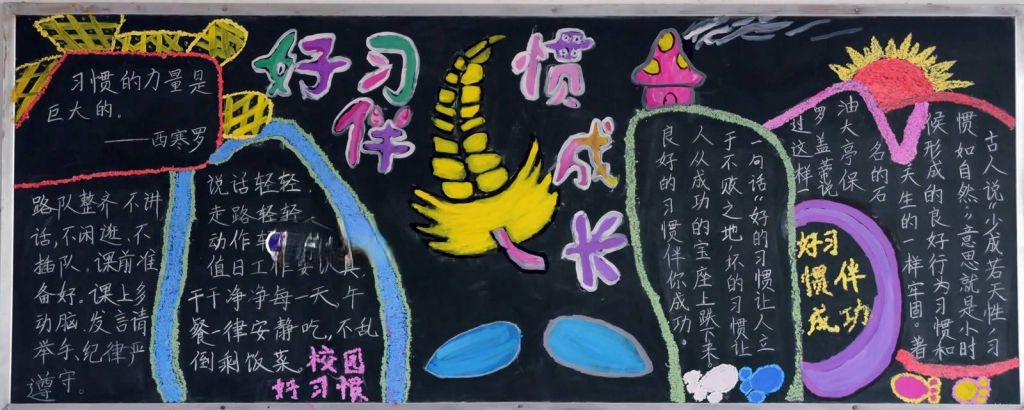 好习惯
伴成长
习惯的力量是
巨大的。
——西塞罗
路队整齐不讲
话,不闲逛、不
插队。课前准
备好。课上多
动脑,发言请
举手,纪律严
遵守。
说话轻轻
走路轻轻
动作
值日工作要认真
干干净净每一天。午
餐一律安静吃,不乱
倒剩饭菜。
校园
好习惯
古人说“少成若天性,习
惯如自然”意思就是小时
候形成的良好行为习惯和
天生的一样牢固。著
名的石
油大亨保
罗盖蒂说
过这样
一句话“好的习惯让人立
于不败之地坏的习惯让
人从成功的宝座上跌下来。
良好的习惯伴你成功。
好习
惯伴
成功